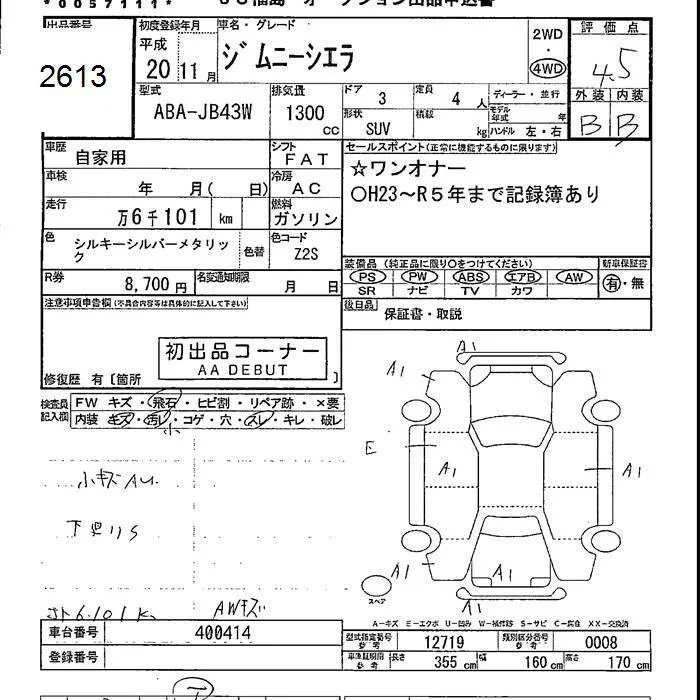 *0057111*
出品番号
2613
初度登録年月
平成
20 11 月
車名・グレード
ジムニーシエラ
2WD
・
4WD
評価点
4.5
外装 内装
B B
型式
ABA-JB43W
排気量
1300
CC
ドア
3
定員
4 人
形状
SUV
積載
kg
ディーラー・並行
モデル年式 年
ハンドル 左・右
車歴
自家用
シフト
FAT
車検
年 月( 日)
冷房
AC
走行
万6千101 km
燃料
ガソリン
色
シルキーシルバーメタリック
色替
色コード
Z2S
R券
8,700 円
名変通知期限
月 日
セールスポイント(正常に機能するものに限ります)
☆ワンオナー
○H23〜R5年まで記録簿あり
装備品(純正品に限り○をつけてください)
PS PW ABS エアB AW
SR ナビ TV カワ
新車保証書
有・無
後日品
保証書・取説
注意事項申告欄(不具合内容等は具体的に記入して下さい)
初出品コーナー
AA DEBUT
修復歴 有〔箇所 〕
検査員記入欄
FW キズ・飛石・ヒビ割・リペア跡・×要
内装 キズ・汚レ・コゲ・穴・スレ・キレ・破レ
小
小キズAU
下廻りS
メーター6.101K
AWキズ
A1
A1
E
A1
A1
A1
A1
A1
A1
スペア
A-キズ E-エクボ U-凹み W-補修跡 S-サビ C-腐食 XX-交換済
車台番号
400414
登録番号
型式指定番号
参考
12719
類別区分番号
参考
0008
車検証明書
参考
長さ 355 cm
幅 160 cm
高さ 170 cm